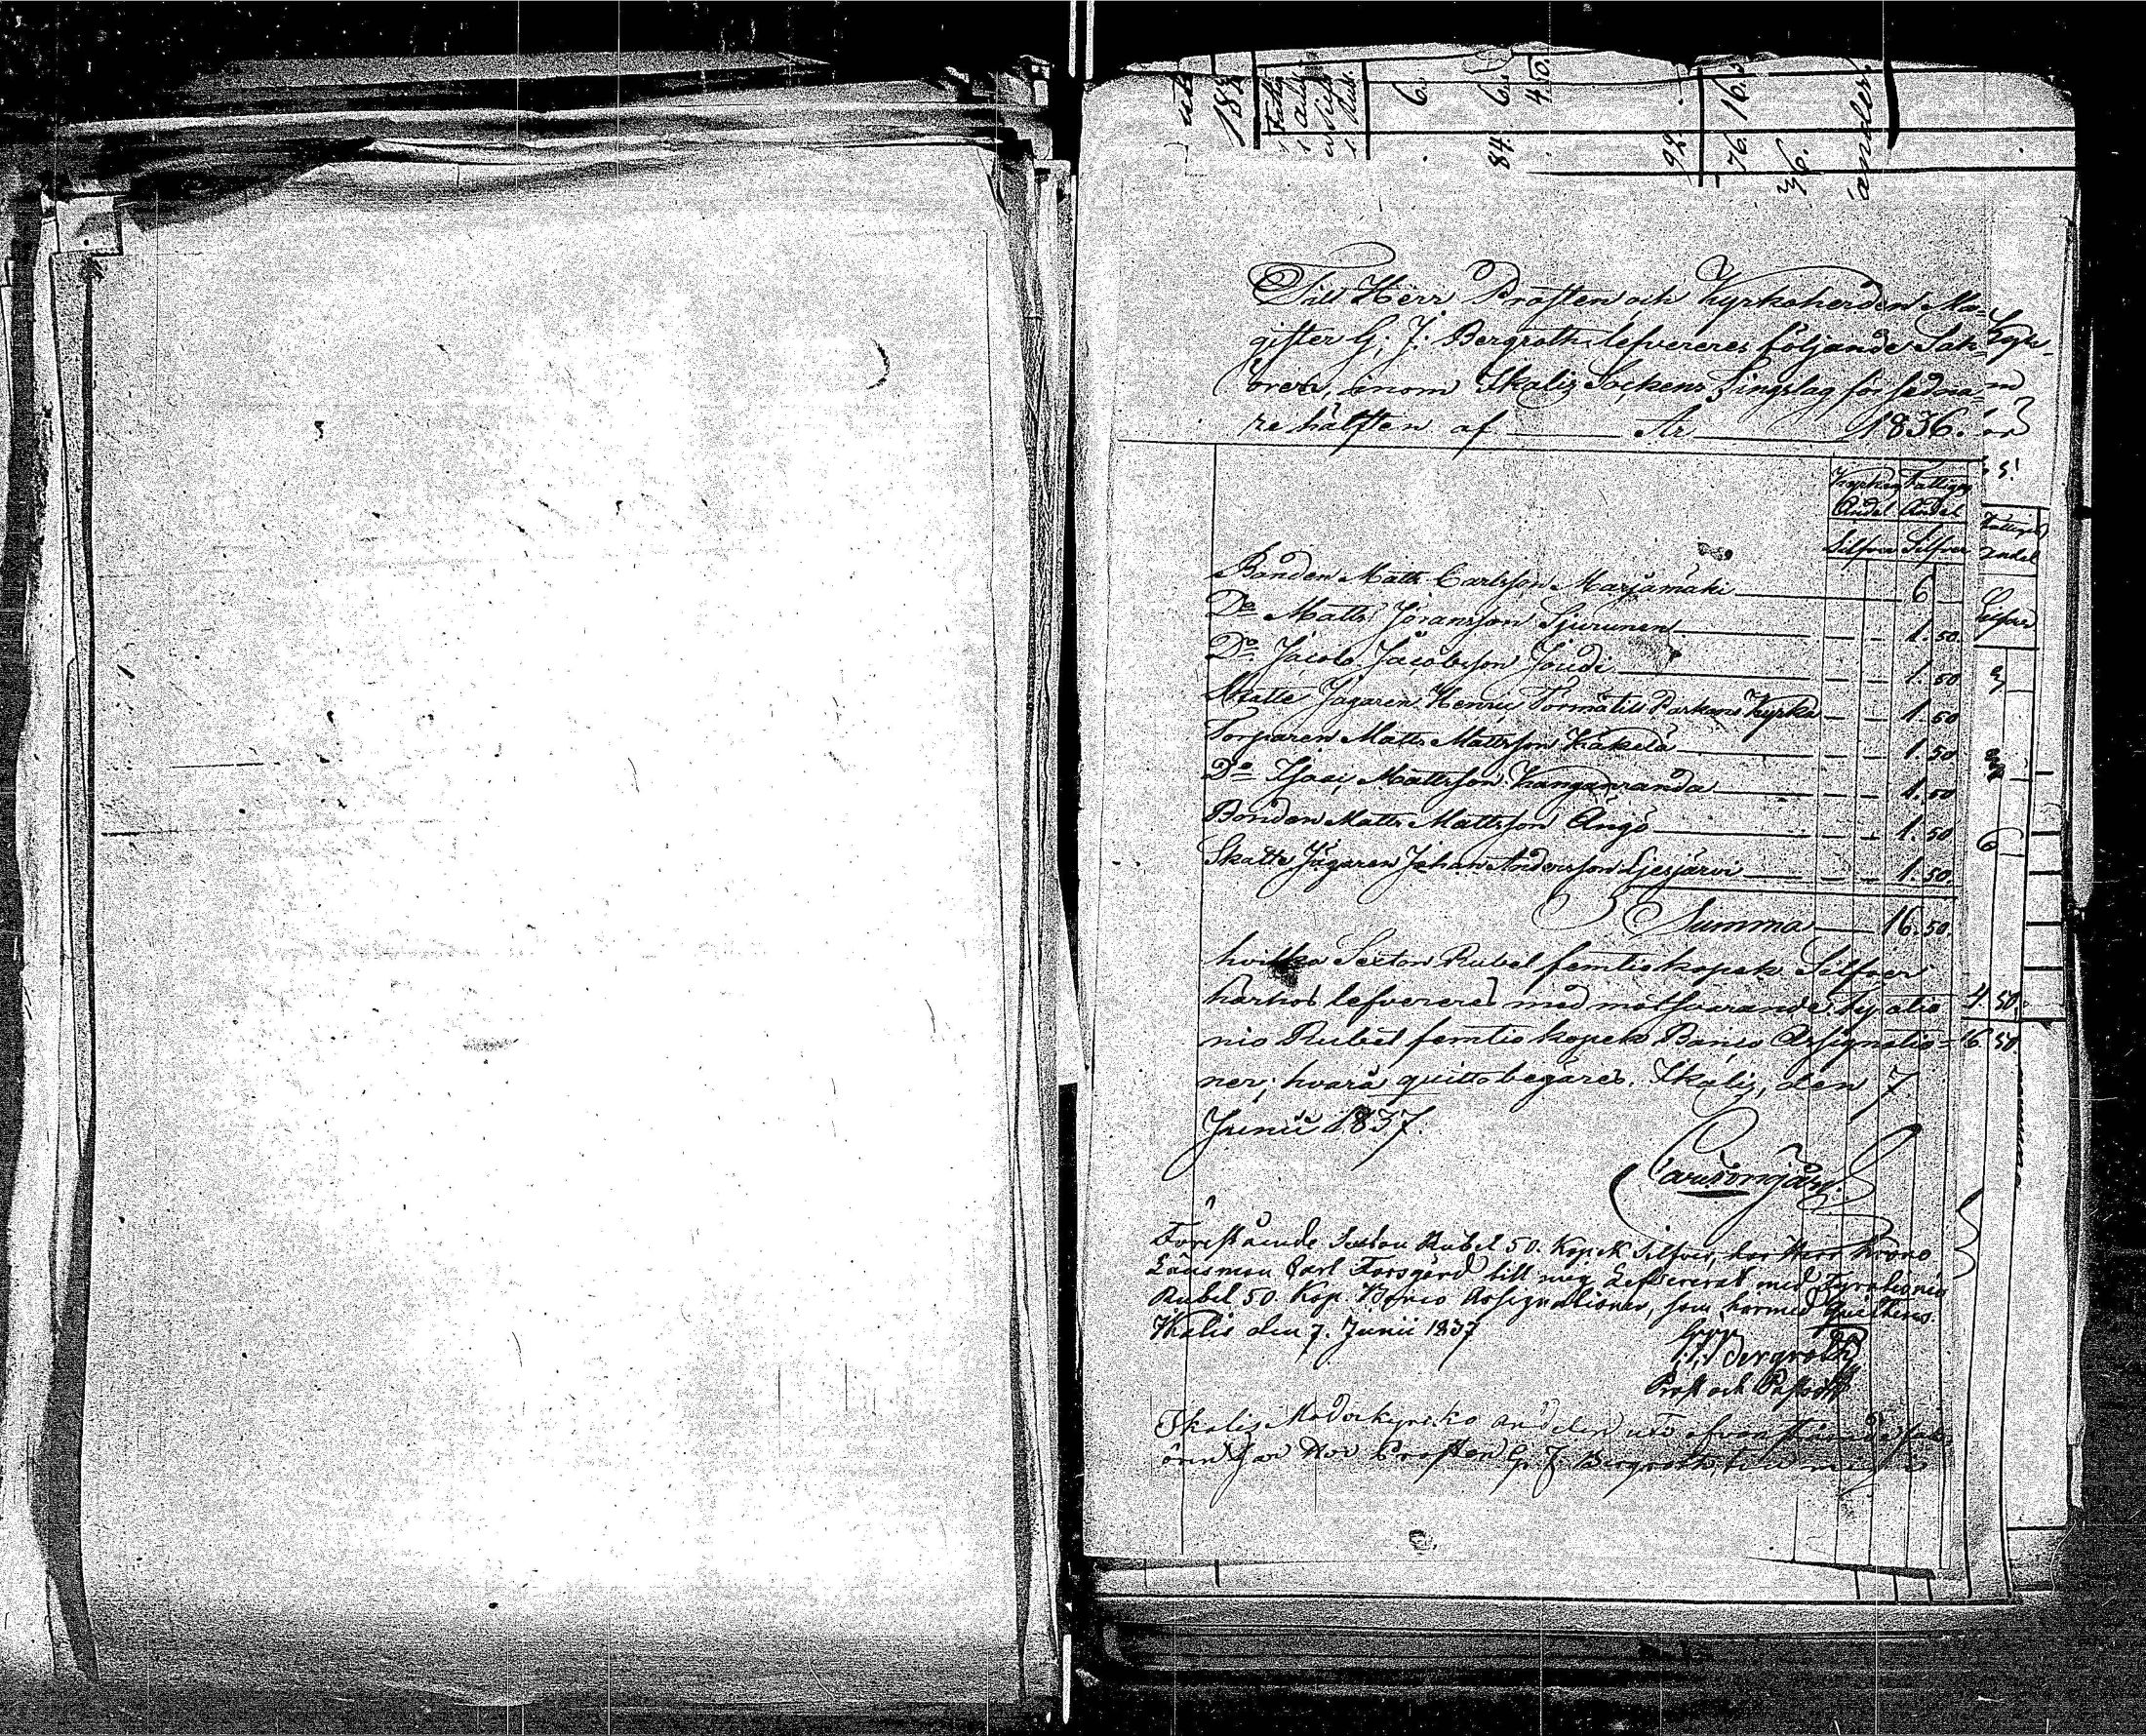 Till Herr Prosten och Kyrkoherden Ma-
gister G. J. Bergroth lefvereres följande Sak-
ören, inom Ikalis Sockens Tingslag för sedna-
re hälften af År 1836.
Kyrkans Fattigas
Andel Andel
Silfver Silfver
Bonden Matts Carlsson Marjamäki 6
Do Matts Jöransson 1.50.
Do Jacob Jacobsson 1.50
Skatte Jägaren Henric Parkano Kyrka 1.50
Torparen Matts Mattsson Käkelä 1.50
Do Isaac Mattsson Kangasranda 1.50
Bonden Matts Mattsson Ängö 1.50
Skatte Jägaren Johan Andersson Liesjärvi 1.50.
Summa 16.50.
hvilka Sexton Rubel femtio kopek Silfver
härhos lefvereres med motsvarande Fyratio
nio Rubel femtio kopek Banco Assignatio-
ner; hvarå quitto begäres. Ikalis, den 7
Junii 1837.
Förestående Sexton Rubel 50. Kopek Silfver, har Herr Krono
Länsman Carl Forsgård till mig Lefvererat med Fyrationio
Rubel 50. Kop. Banco Assignationer, som härmed quitteras.
Ikalis den 7. Junii 1837
G. J. Bergroth
Prost och Pastor
Ikalis Moderkyrko andelen utaf ofvanstående sak-
ören har Herr Prosten G. J. Bergroth, till mig